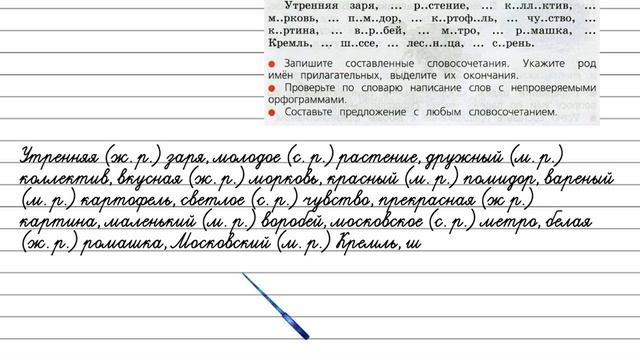 Утренняя заря, ... р..стение, ... к..лл..ктив, ...
м..рковь, ... п..м..дор, ... к..ртоф..ль, ... чу..ство, ...
к..ртина, ... в..р..бей, ... м..тро, ... р..машка, ...
Кремль, ... ш..ссе, ... лес..н..ца, ... с..рень.
● Запишите составленные словосочетания. Укажите род
имён прилагательных, выделите их окончания.
● Проверьте по словарю написание слов с непроверяемыми
орфограммами.
● Составьте предложение с любым словосочетанием.
Утренняя (ж. р.) заря, молодое (с. р.) растение, дружный (м. р.)
коллектив, вкусная (ж. р.) морковь, красный (м. р.) помидор, вареный
(м. р.) картофель, светлое (с. р.) чувство, прекрасная (ж р.)
картина, маленький (м. р.) воробей, московское (с. р.) метро, белая
(ж. р.) ромашка, Московский (м. р.) Кремль, ш